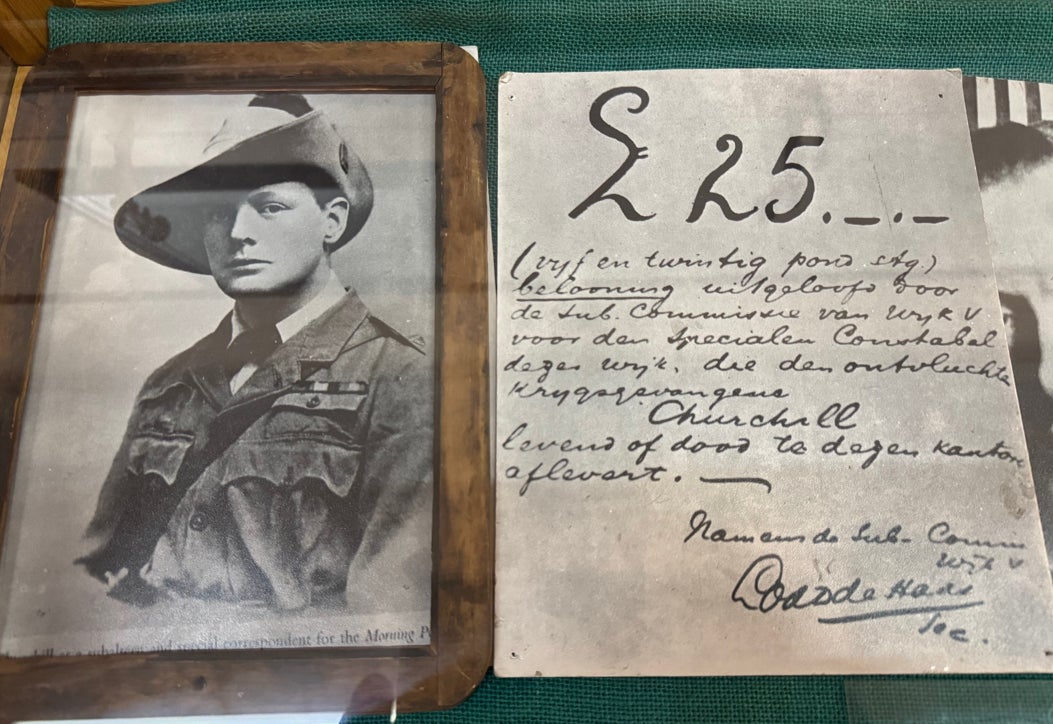 hill as a subaltern and special correspondent for the Morning P
£ 25.—.—
(vyf en twintig pond stg.)
belooning uitgeloofd door
de Sub. Commissie van Wyk V
voor den Specialen Constabel
dezes wijk, die den ontvluchte
Krygsgevangene
Churchill
levend of dood te dezen kantore
aflevert. —
Namens de Sub- Comm
Wijk V
Lodk de Haas
Sec.